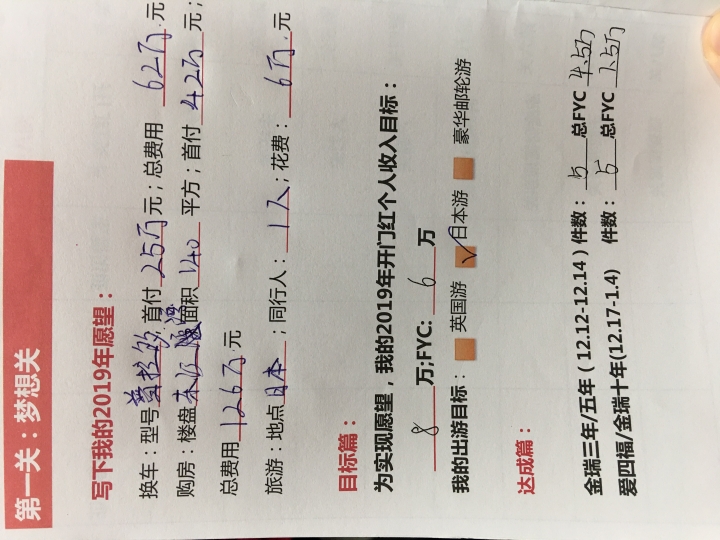 第一关：梦想关
写下我的2019年愿望：
换车：型号 首付25万元；总费用62万元
购房：楼盘 面积140平方；首付42万元；
总费用126万元
旅游：地点日本；同行人：1人；花费：6万元
目标篇：
为实现愿望，我的2019年开门红个人收入目标：
8万;FYC: 6万
我的出游目标： 英国游 ✓日本游 豪华邮轮游
达成篇：
金瑞三年/五年（12.12-12.14）件数：5总FYC 4.5万
爱四福/金瑞十年(12.17-1.4) 件数：5总FYC 1.5万